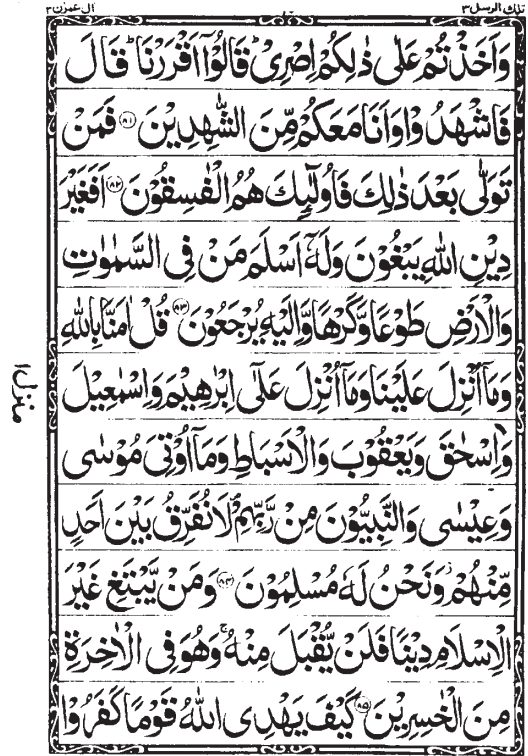 تلك الرسل ٣
ال عمرٰن ٣
وَاَخَذْتُمْ عَلٰى ذٰلِكُمْ اِصْرِىْ ؕ قَالُوْۤا اَقْرَرْنَا ؕ قَالَ
فَاشْهَدُوْا وَاَنَا مَعَكُمْ مِّنَ الشّٰهِدِيْنَ ﴿۸۱﴾ فَمَنْ
تَوَلّٰى بَعْدَ ذٰلِكَ فَاُولٰٓئِكَ هُمُ الْفٰسِقُوْنَ ﴿۸۲﴾ اَفَغَيْرَ
دِيْنِ اللّٰهِ يَبْغُوْنَ وَلَهٗۤ اَسْلَمَ مَنْ فِى السَّمٰوٰتِ
وَالْاَرْضِ طَوْعًا وَّكَرْهًا وَّاِلَيْهِ يُرْجَعُوْنَ ﴿۸۳﴾ قُلْ اٰمَنَّا بِاللّٰهِ
وَمَاۤ اُنْزِلَ عَلَيْنَا وَمَاۤ اُنْزِلَ عَلٰٓى اِبْرٰهِيْمَ وَاِسْمٰعِيْلَ
وَاِسْحٰقَ وَيَعْقُوْبَ وَالْاَسْبَاطِ وَمَاۤ اُوْتِىَ مُوْسٰى
وَعِيْسٰى وَالنَّبِيُّوْنَ مِنْ رَّبِّهِمْ ۪ لَا نُفَرِّقُ بَيْنَ اَحَدٍ
مِّنْهُمْ ؗ وَنَحْنُ لَهٗ مُسْلِمُوْنَ ﴿۸۴﴾ وَمَنْ يَّبْتَغِ غَيْرَ
الْاِسْلَامِ دِيْنًا فَلَنْ يُّقْبَلَ مِنْهُ ۚ وَهُوَ فِى الْاٰخِرَةِ
مِنَ الْخٰسِرِيْنَ ﴿۸۵﴾ كَيْفَ يَهْدِى اللّٰهُ قَوْمًا كَفَرُوْا
منزل ۱